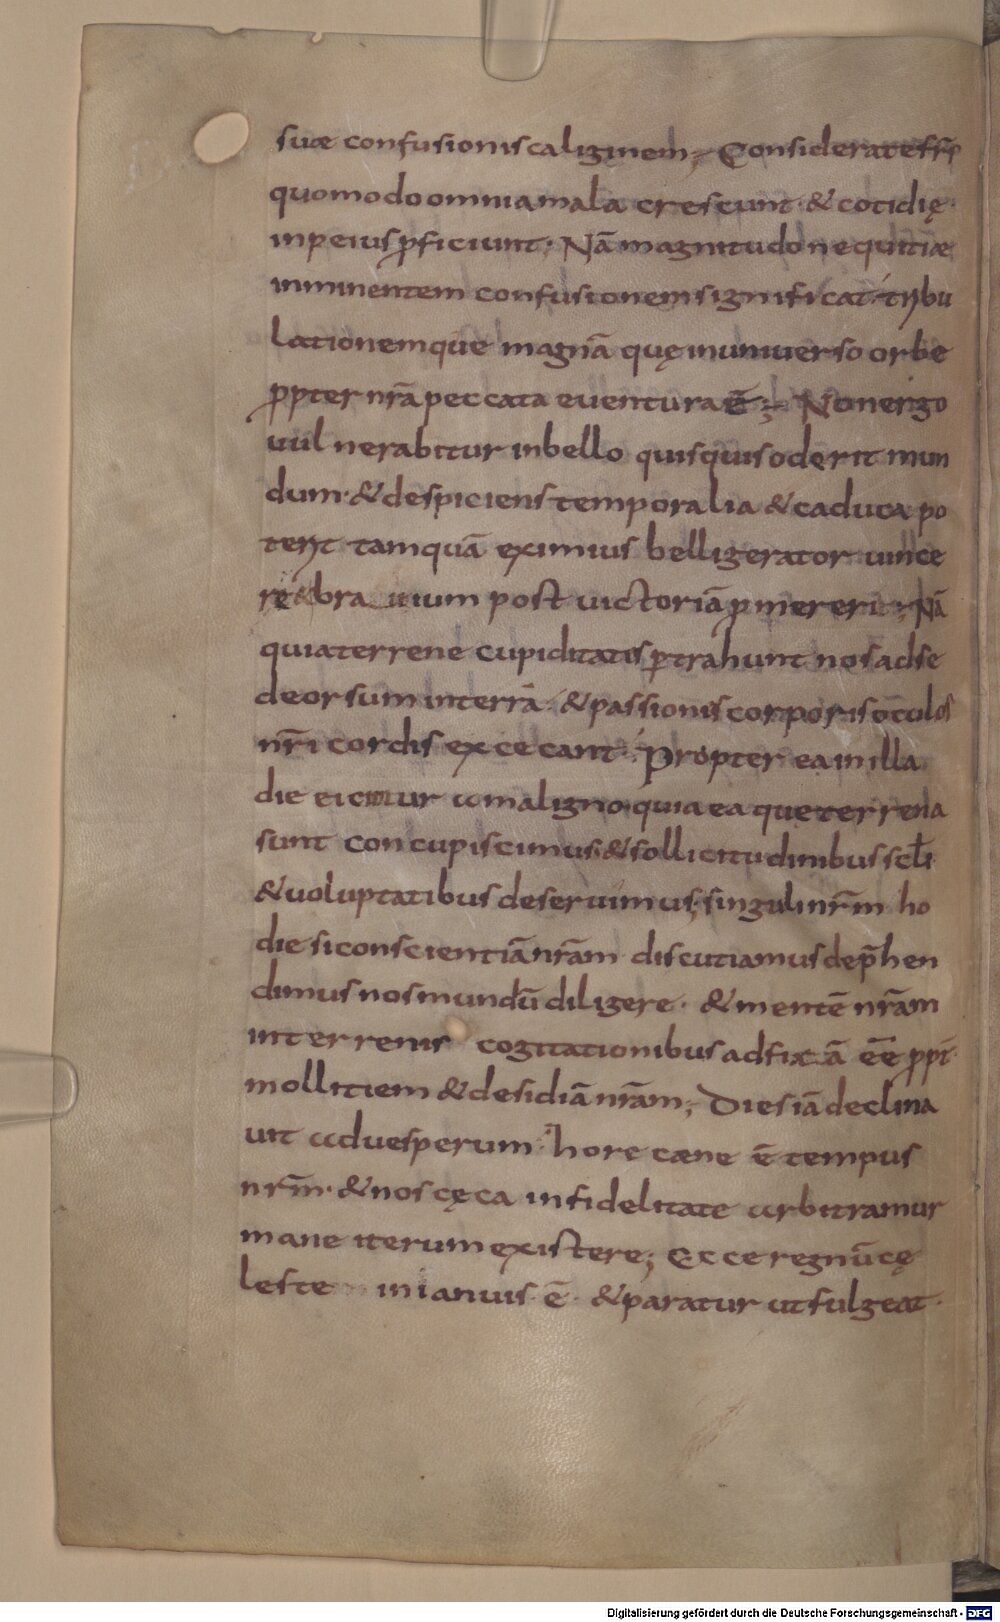 suæ confusionis caliginem; Considerate ff̄
quomodo omnia mala crescunt · & cotidię
in peius ꝓficiunt · Nā magnitudo nequitiæ
inminentem confusionem significat · tribu
lationemque magnā quę in universo orbe
ꝓpter nr̄a peccata eventura ē; Non ergo
vulnerabitur in bello quisquis oderit mun
dum · & despiciens temporalia & caduca po
terit tamquā eximius belligerator vince
re & bravium post victoriā ꝓmereri; Nā
quia terrene cupiditatis ꝑtrahunt nos ad se
deorsum in terrā · & passionis corporis oculos
nr̄i cordis excecant · Propterea in illa
die eicitur a maligno quia ea que terrena
sunt concupiscimus · & sollicitudinibus scl̄i
& voluptatibus deservimus; singuli nr̄m ho
die si conscientiā nr̄am discutiamus dep̄hen
dimus nos mundū diligere · & mentē nr̄am
in terrenis cogitationibus adfixā eē̄ ꝓpt̄
mollitiem & desidiā nr̄am; Dies iā declina
vit ad vesperum · hore cæne ē tempus
nr̄m · & nos cęca infidelitate arbitramur
mane iterum existere; Ecce regnū cę
leste in ianuis · ē · & paratur ut fulgeat ·
Digitalisierung gefördert durch die Deutsche Forschungsgemeinschaft - DFG